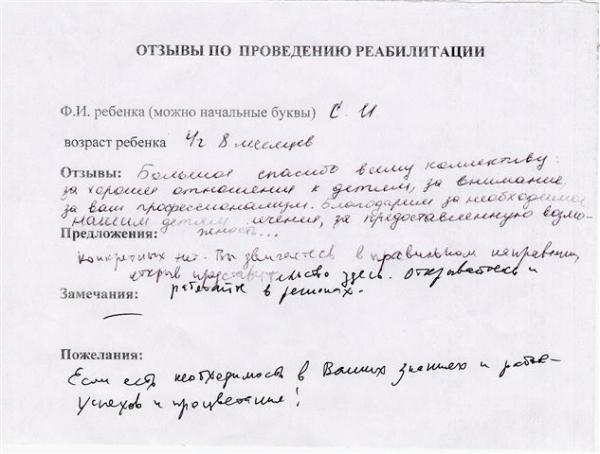 ОТЗЫВЫ ПО ПРОВЕДЕНИЮ РЕАБИЛИТАЦИИ
Ф.И. ребенка (можно начальные буквы) С. И
возраст ребенка 4г 8 месяцев
Отзывы: Большое спасибо всему коллективу:
за хорошее отношение к детям, за внимание,
за ваш профессионализм. Благодарим за необходимое
нашим детям лечение, за предоставленную возмо-
Предложения: жность...
Конкретных нет. Вы двигаетесь в правильном направлении,
открыв представительство здесь. Открывайтесь и
Замечания: работайте в регионах.
—
Пожелания:
Если есть необходимость в Ваших знаниях и работе-
успехов и процветания!